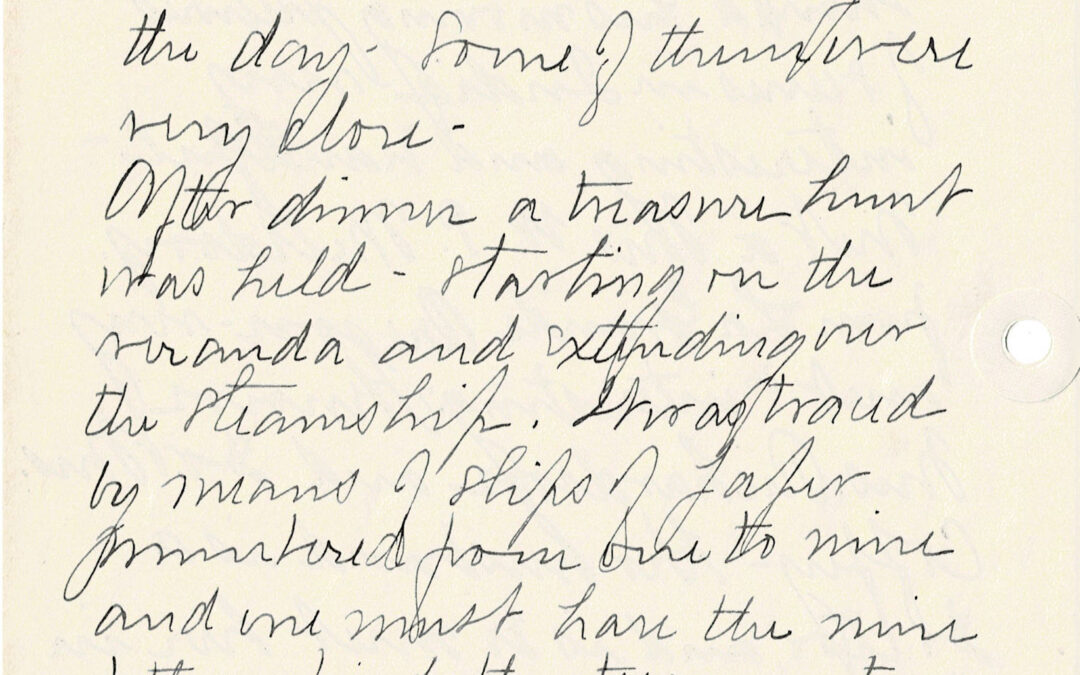 the day - Some of them were
very close -
After dinner a treasure hunt
was held - starting on the
veranda and extending over
the steamship. It was traced
by means of slips of paper
numbered from one to nine
and one must have the nine